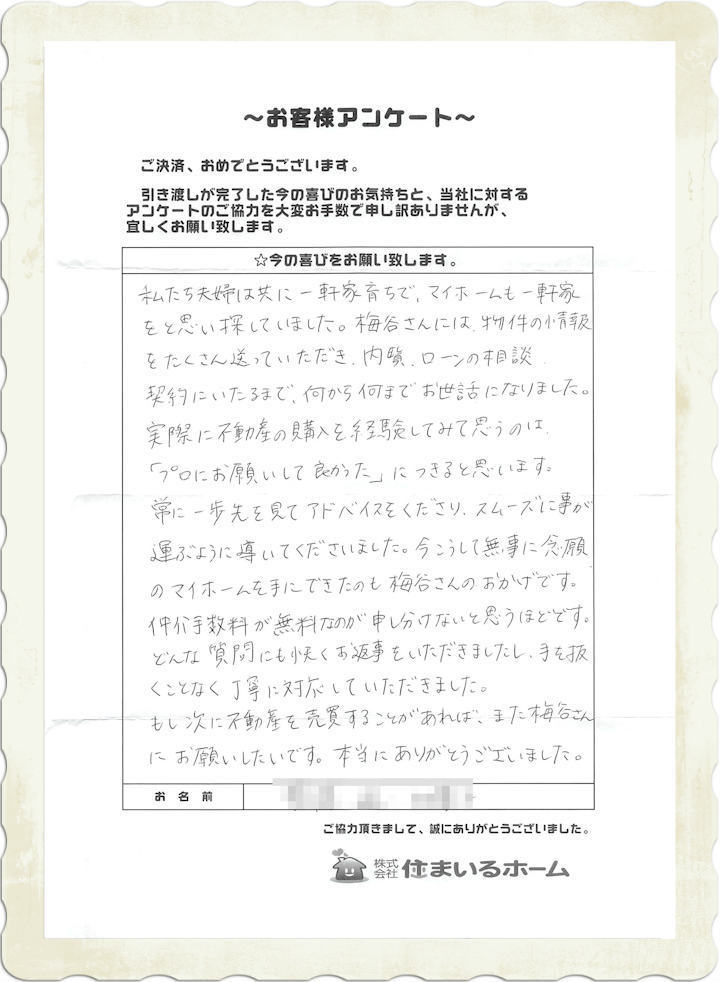 ～お客様アンケート～
ご決済、おめでとうございます。
引き渡しが完了した今の喜びのお気持ちと、当社に対する
アンケートのご協力を大変お手数で申し訳ありませんが、
宜しくお願い致します。
☆今の喜びをお願い致します。
私たち夫婦は共に一軒家育ちで、マイホームも一軒家
をと思い探していました。梅谷さんには、物件の情報
をたくさん送っていただき、内覧、ローンの相談、
契約にいたるまで、何から何までお世話になりました。
実際に不動産の購入を経験してみて思うのは、
「プロにお願いして良かった」につきると思います。
常に一歩先を見てアドバイスをくださり、スムーズに事が
運ぶように導いてくださいました。今こうして無事に念願
のマイホームを手にできたのも梅谷さんのおかげです。
仲介手数料が無料なのが申し分けないと思うほどです。
どんな質問にも快くお返事をいただきましたし、手を抜
くことなく丁寧に対応していただきました。
もし次に不動産を売買することがあれば、また梅谷さん
にお願いしたいです。本当にありがとうございました。
お名前
ご協力頂きまして、誠にありがとうございました。
株式会社 住まいるホーム